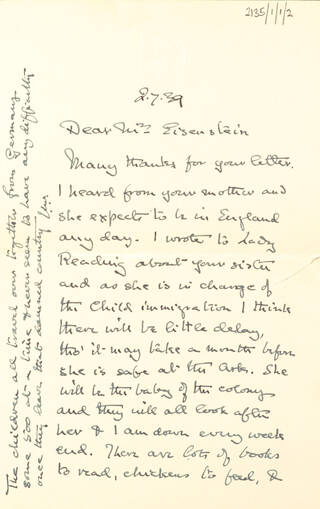 2135/1/1/2
2.7.39
Dear Mrs Eisenstein
Many thanks for your letter.
I heard from your mother and
she expects to be in England
any day. I wrote to Lady
Reading about your sister
and as she is in charge of
the Child immigration I think
there will be little delay,
tho' it may take a month before
she is safe at the
She
will be the baby of the colony
and they will all look after
her & I am down every week
end. There are lots of books
to read, chickens to feed, &
The children all travel over together from Germany
some 500 at a time & never seem to have any difficulty
once they leave that damned country